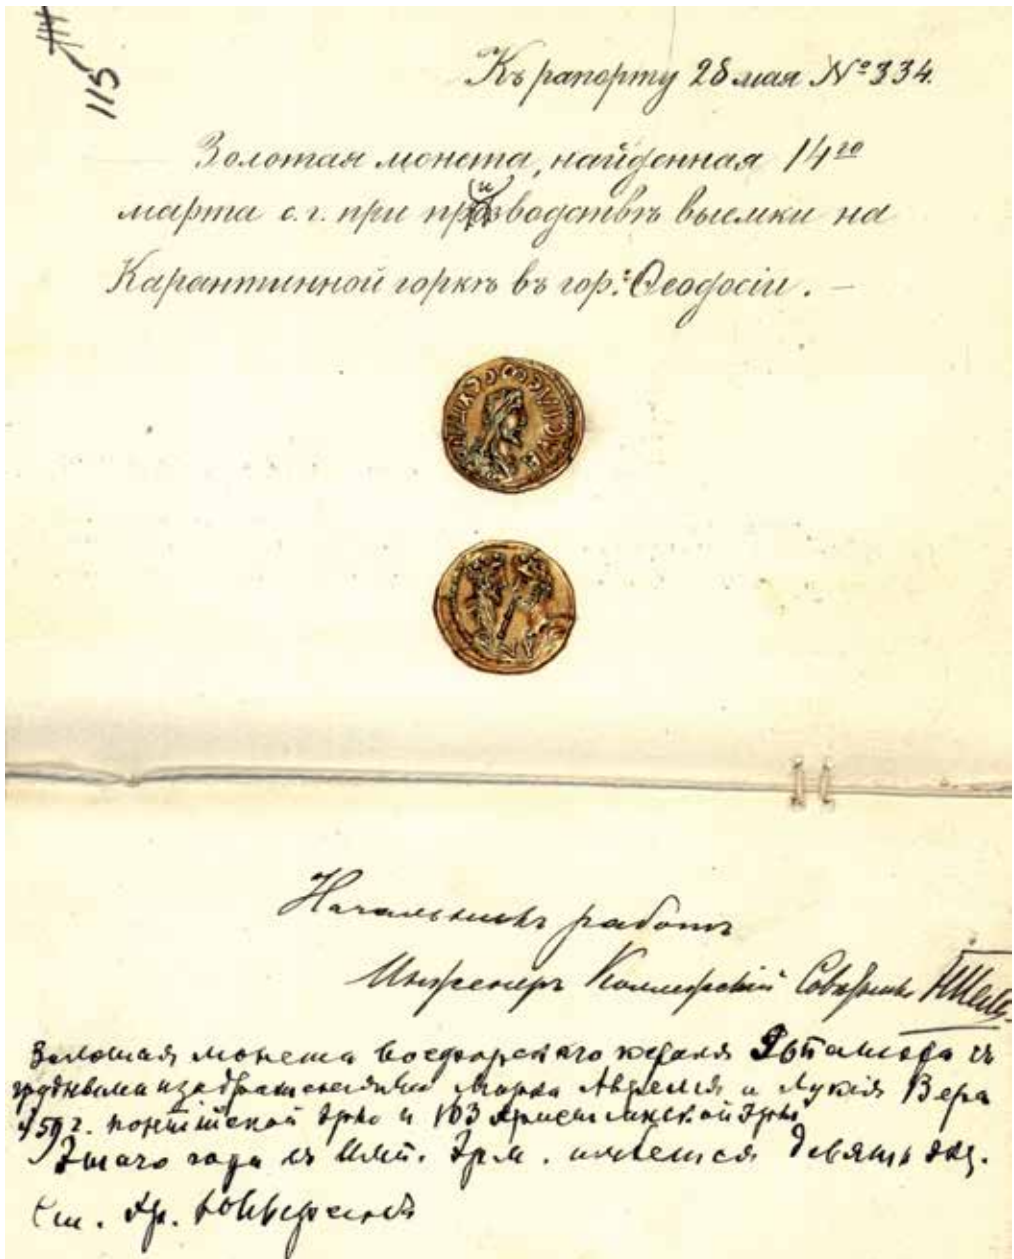 114
115
Къ рапорту 28 мая № 334.
Золотая монета, найденная 14го
марта с. г. при производствѣ выемки на
Карантинной горкѣ въ гор: Ѳеодосіи. –
Начальникъ работъ
Инженеръ Коллежскій Совѣтникъ
Золотая монета воспорскаго короля Эвпатора съ
грудными изображеніями Марка Аврелія и Лукія Вера
459 г. понтійской эры и 163 христіанской эры
Этого года въ Имп. Эрм. имѣется девять экз.
Ст. Хр.